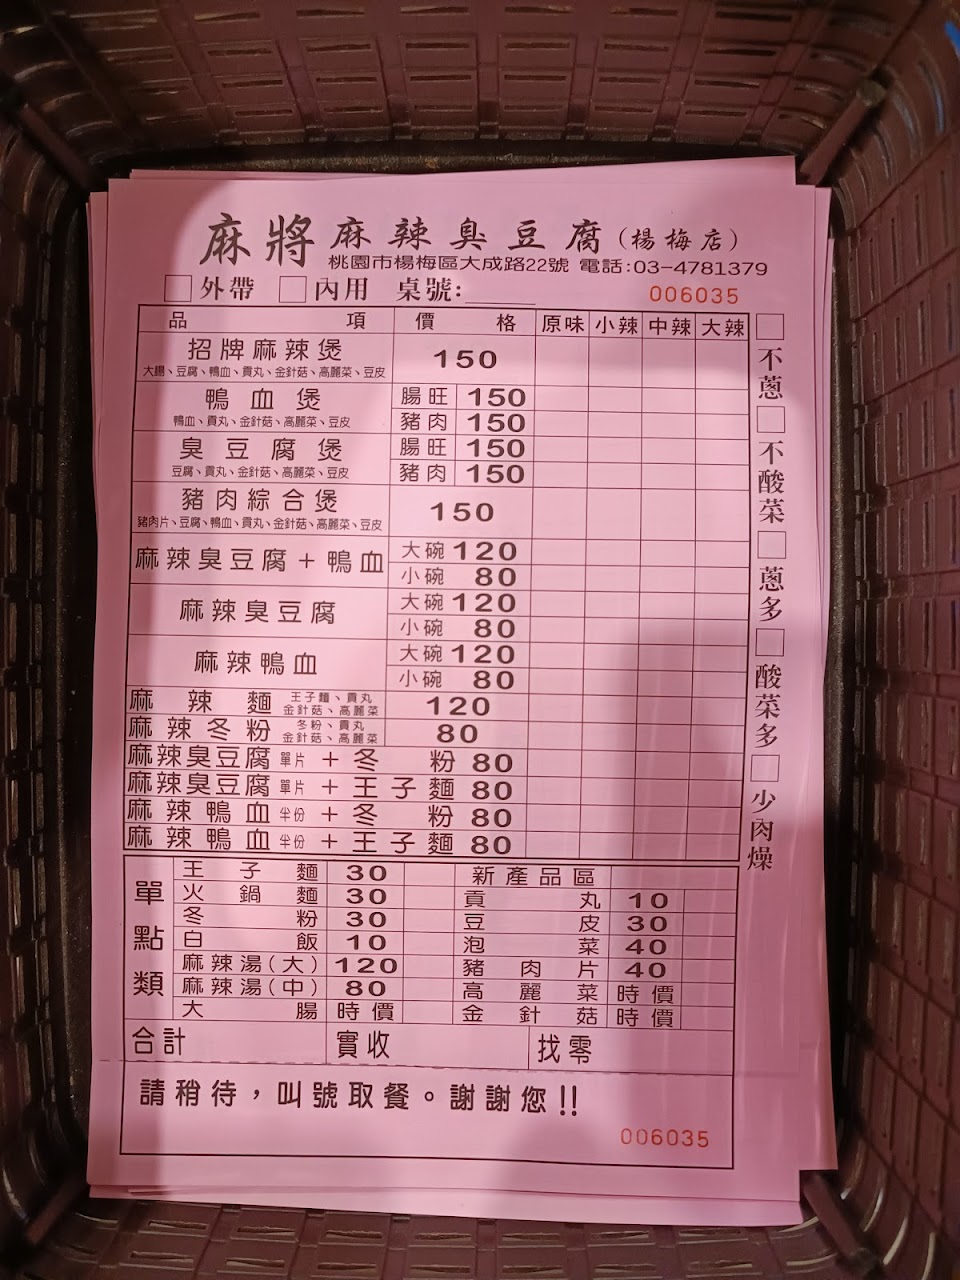 麻將麻辣臭豆腐(楊梅店)
桃園市楊梅區大成路22號 電話:03-4781379
□外帶 □內用 桌號:______ 006035
品項 價格 原味 小辣 中辣 大辣
招牌麻辣煲 150
大腸、豆腐、鴨血、貢丸、金針菇、高麗菜、豆皮
鴨血煲 腸旺 150
鴨血、貢丸、金針菇、高麗菜、豆皮 豬肉 150
臭豆腐煲 腸旺 150
豆腐、貢丸、金針菇、高麗菜、豆皮 豬肉 150
豬肉綜合煲 150
豬肉片、豆腐、鴨血、貢丸、金針菇、高麗菜、豆皮
麻辣臭豆腐+鴨血 大碗 120
小碗 80
麻辣臭豆腐 大碗 120
小碗 80
麻辣鴨血 大碗 120
小碗 80
麻辣麵 王子麵、貢丸 金針菇、高麗菜 120
麻辣冬粉 冬粉、貢丸 金針菇、高麗菜 80
麻辣臭豆腐單片+冬粉 80
麻辣臭豆腐單片+王子麵 80
麻辣鴨血半份+冬粉 80
麻辣鴨血半份+王子麵 80
□不蔥
□不酸菜
□蔥多
□酸菜多
□少肉燥
單點類
王子麵 30 新產品區
火鍋麵 30 貢丸 10
冬粉 30 豆皮 30
白飯 10 泡菜 40
麻辣湯(大) 120 豬肉片 40
麻辣湯(中) 80 高麗菜 時價
大腸 時價 金針菇 時價
合計 實收 找零
請稍待,叫號取餐。謝謝您!!
006035